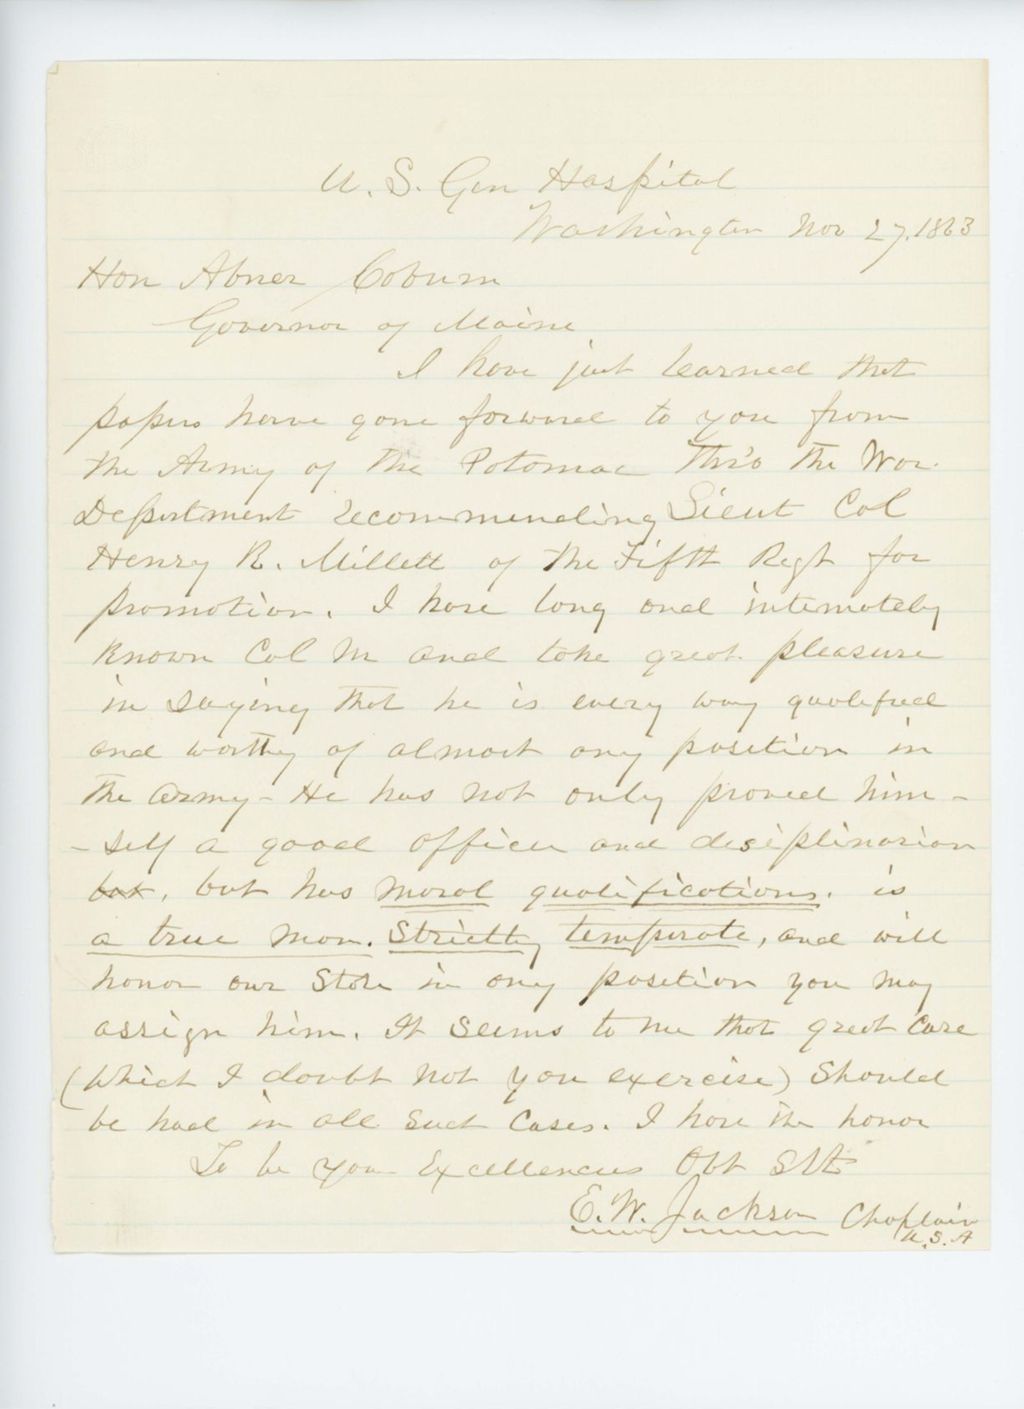 U. S. Gen Hospital
Washington Nov 27, 1863
Hon Abner Coburn
Governor of Maine
I have just learned that
papers have gone forward to you from
the Army of the Potomac Thr'o the War
Department recommending Lieut Col
Henry R. Millett of the Fifth Regt for
promotion. I have long and intimately
known Col M and take great pleasure
in saying that he is every way qualified
and worthy of almost any position in
the army - He has not only proved him -
- self a good officer and desiplinarian
but, but has moral qualifications. is
a true man. Strictly temperate, and will
honor our State in any position you may
assign him. It seems to me that great care
(which I doubt not you exercise) should
be had in all such cases. I have the honor
To be your Excellencies Obt Svt
E. W. Jackson Chaplain
U.S.A